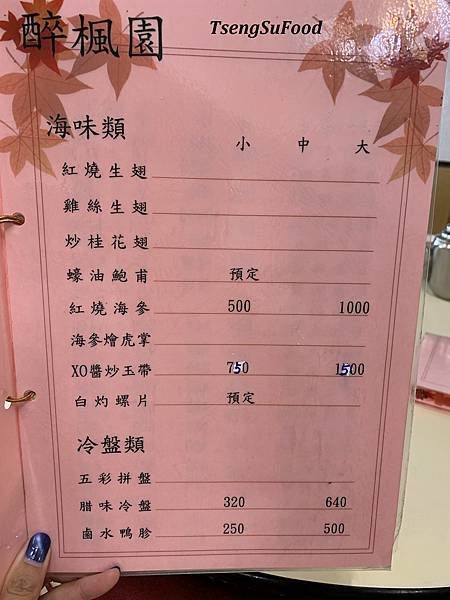 醉楓園 TsengSuFood
海味類 小 中 大
紅燒生翅
雞絲生翅
炒桂花翅
蠔油鮑甫 預定
紅燒海參 500 1000
海參燴虎掌
XO醬炒玉帶 750 1500
白灼螺片 預定
冷盤類
五彩拼盤
腊味冷盤 320 640
鹵水鴨胗 250 500